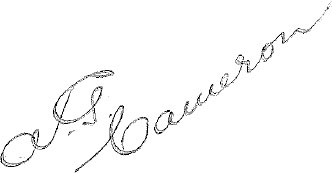 A G Cameron